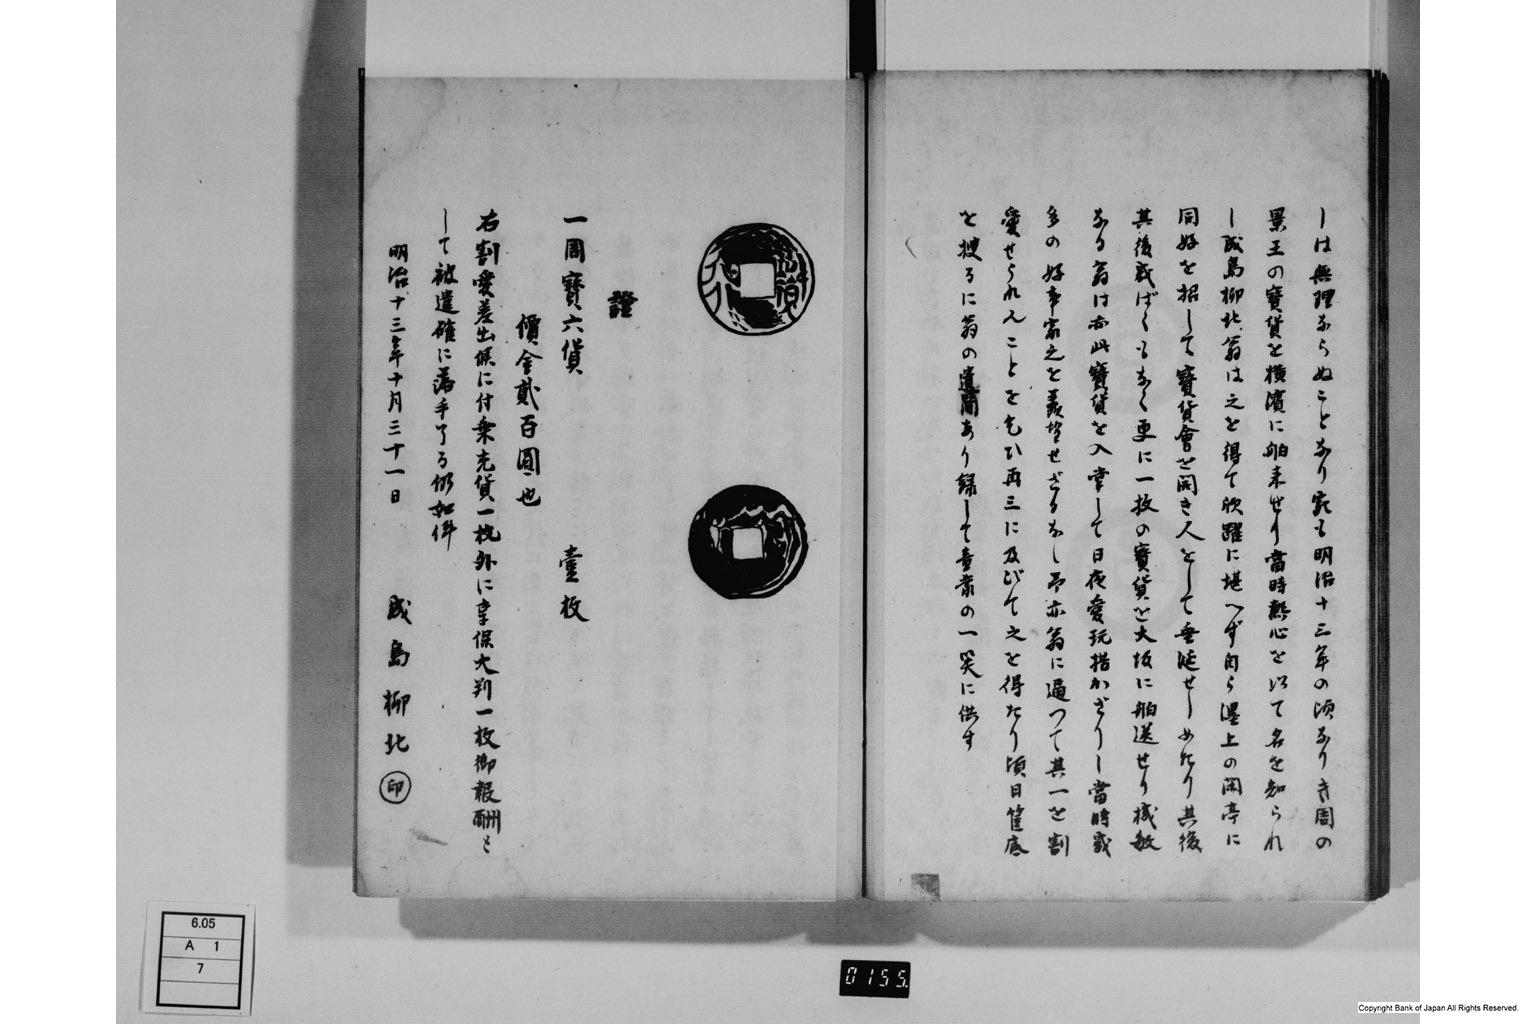 しは無理ならぬことなり宛も明治十三年の頃なりき周の
景王の寶貨を横濱に舶来せり當時熱心を以て名を知られ
し成島柳北翁は之を得て欣躍に堪へず自ら濹上の閑亭に
同好を招して寳貨會を開き人をして垂涎せしめたり其後
其後幾ばくもなく更に一枚の寳貨を大坂に舶送せり機敏
なる翁は亦此寳貨を入掌して日夜愛玩措かざりし當時幾
多の好事家之を羨望せざるなし予亦翁に逼つて其一を割
愛せられんことを乞ひ再三に及びて之を得たり頃日筐底
を捜るに翁の遺簡あり録して童蒙の一笑に供す
證
一周寳六貨 壹枚
價金貳百圓也
右割愛差出候に付乗充貨一枚外に享保大判一枚御報酬と
して被遣確に落手了る仍如件
明治十三年十月三十一日 成島柳北 印
6.05
A 1
7
0155.
Copyright Bank of Japan All Rights Reserved.